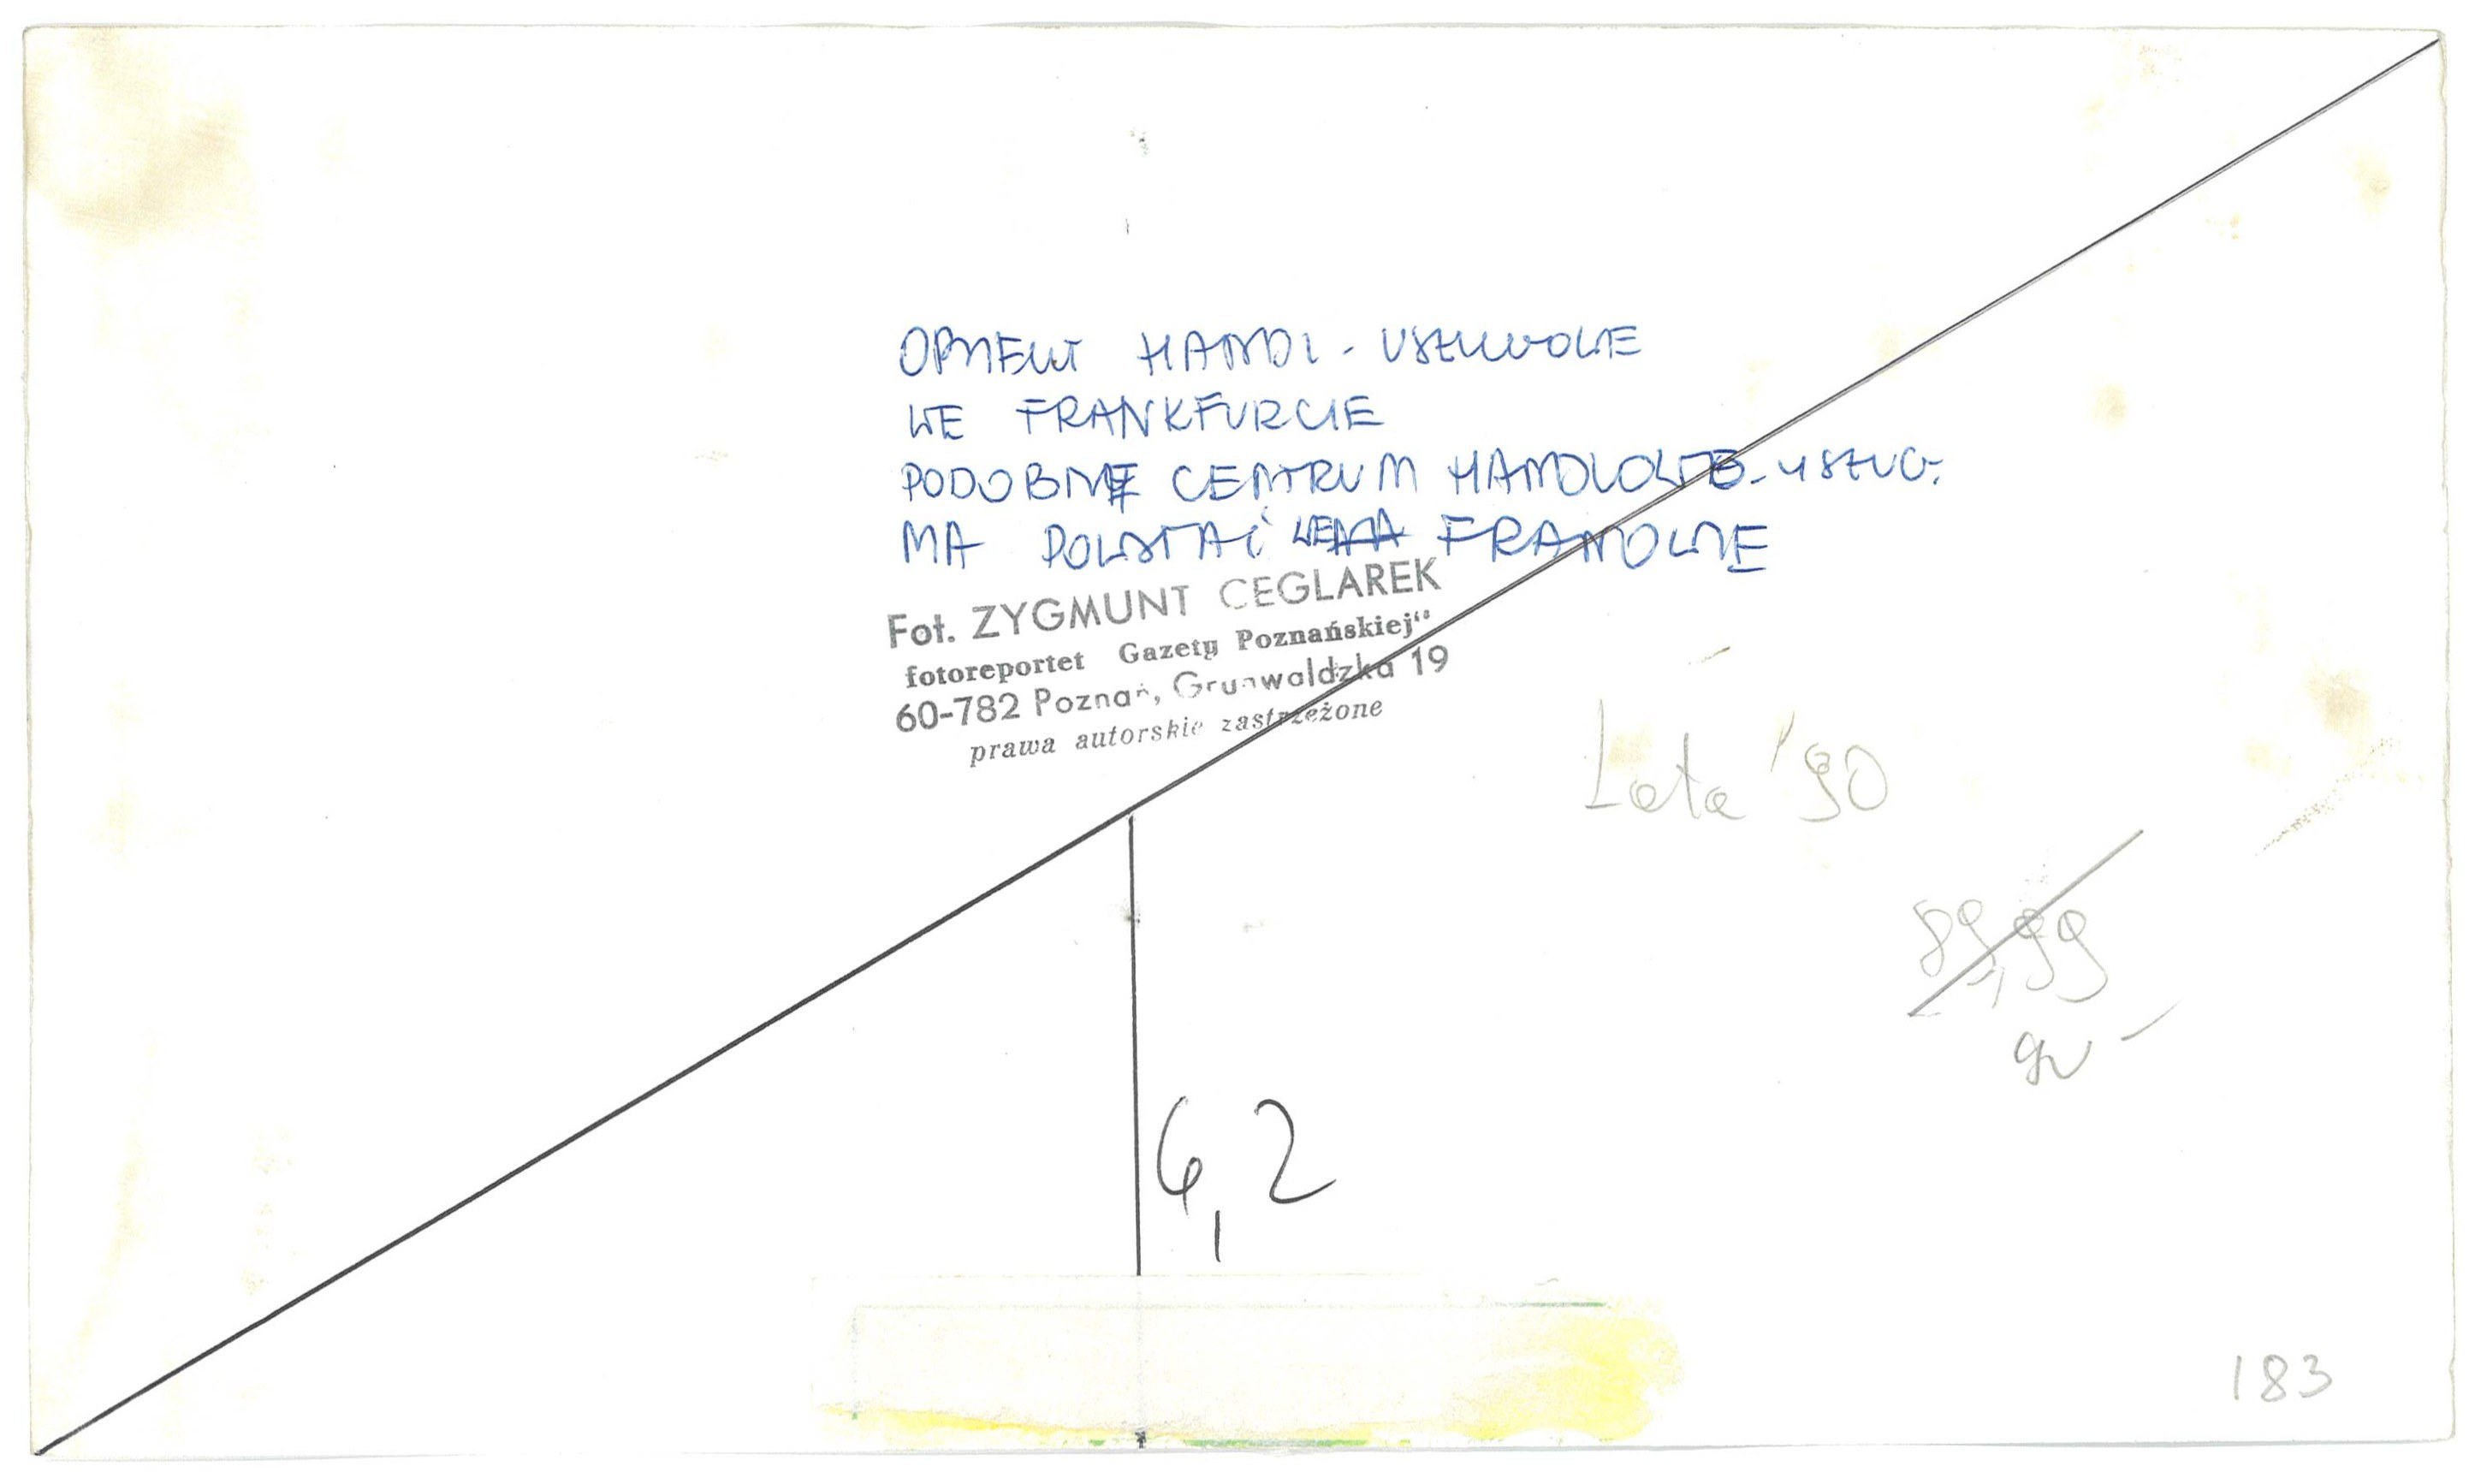 OBIEKT HANDL-USŁUGOWE
WE FRANKFURCIE
PODOBNE CENTRUM HANDLOWO-USŁUG.
MA POWSTAĆ FRANOWIE
Fot. ZYGMUNT CEGLAREK
fotoreporter Gazety Poznańskiej"
60-782 Poznań, Grunwaldzka 19
prawa autorskie zastrzeżone
Lata '90
89,99
6,2
183